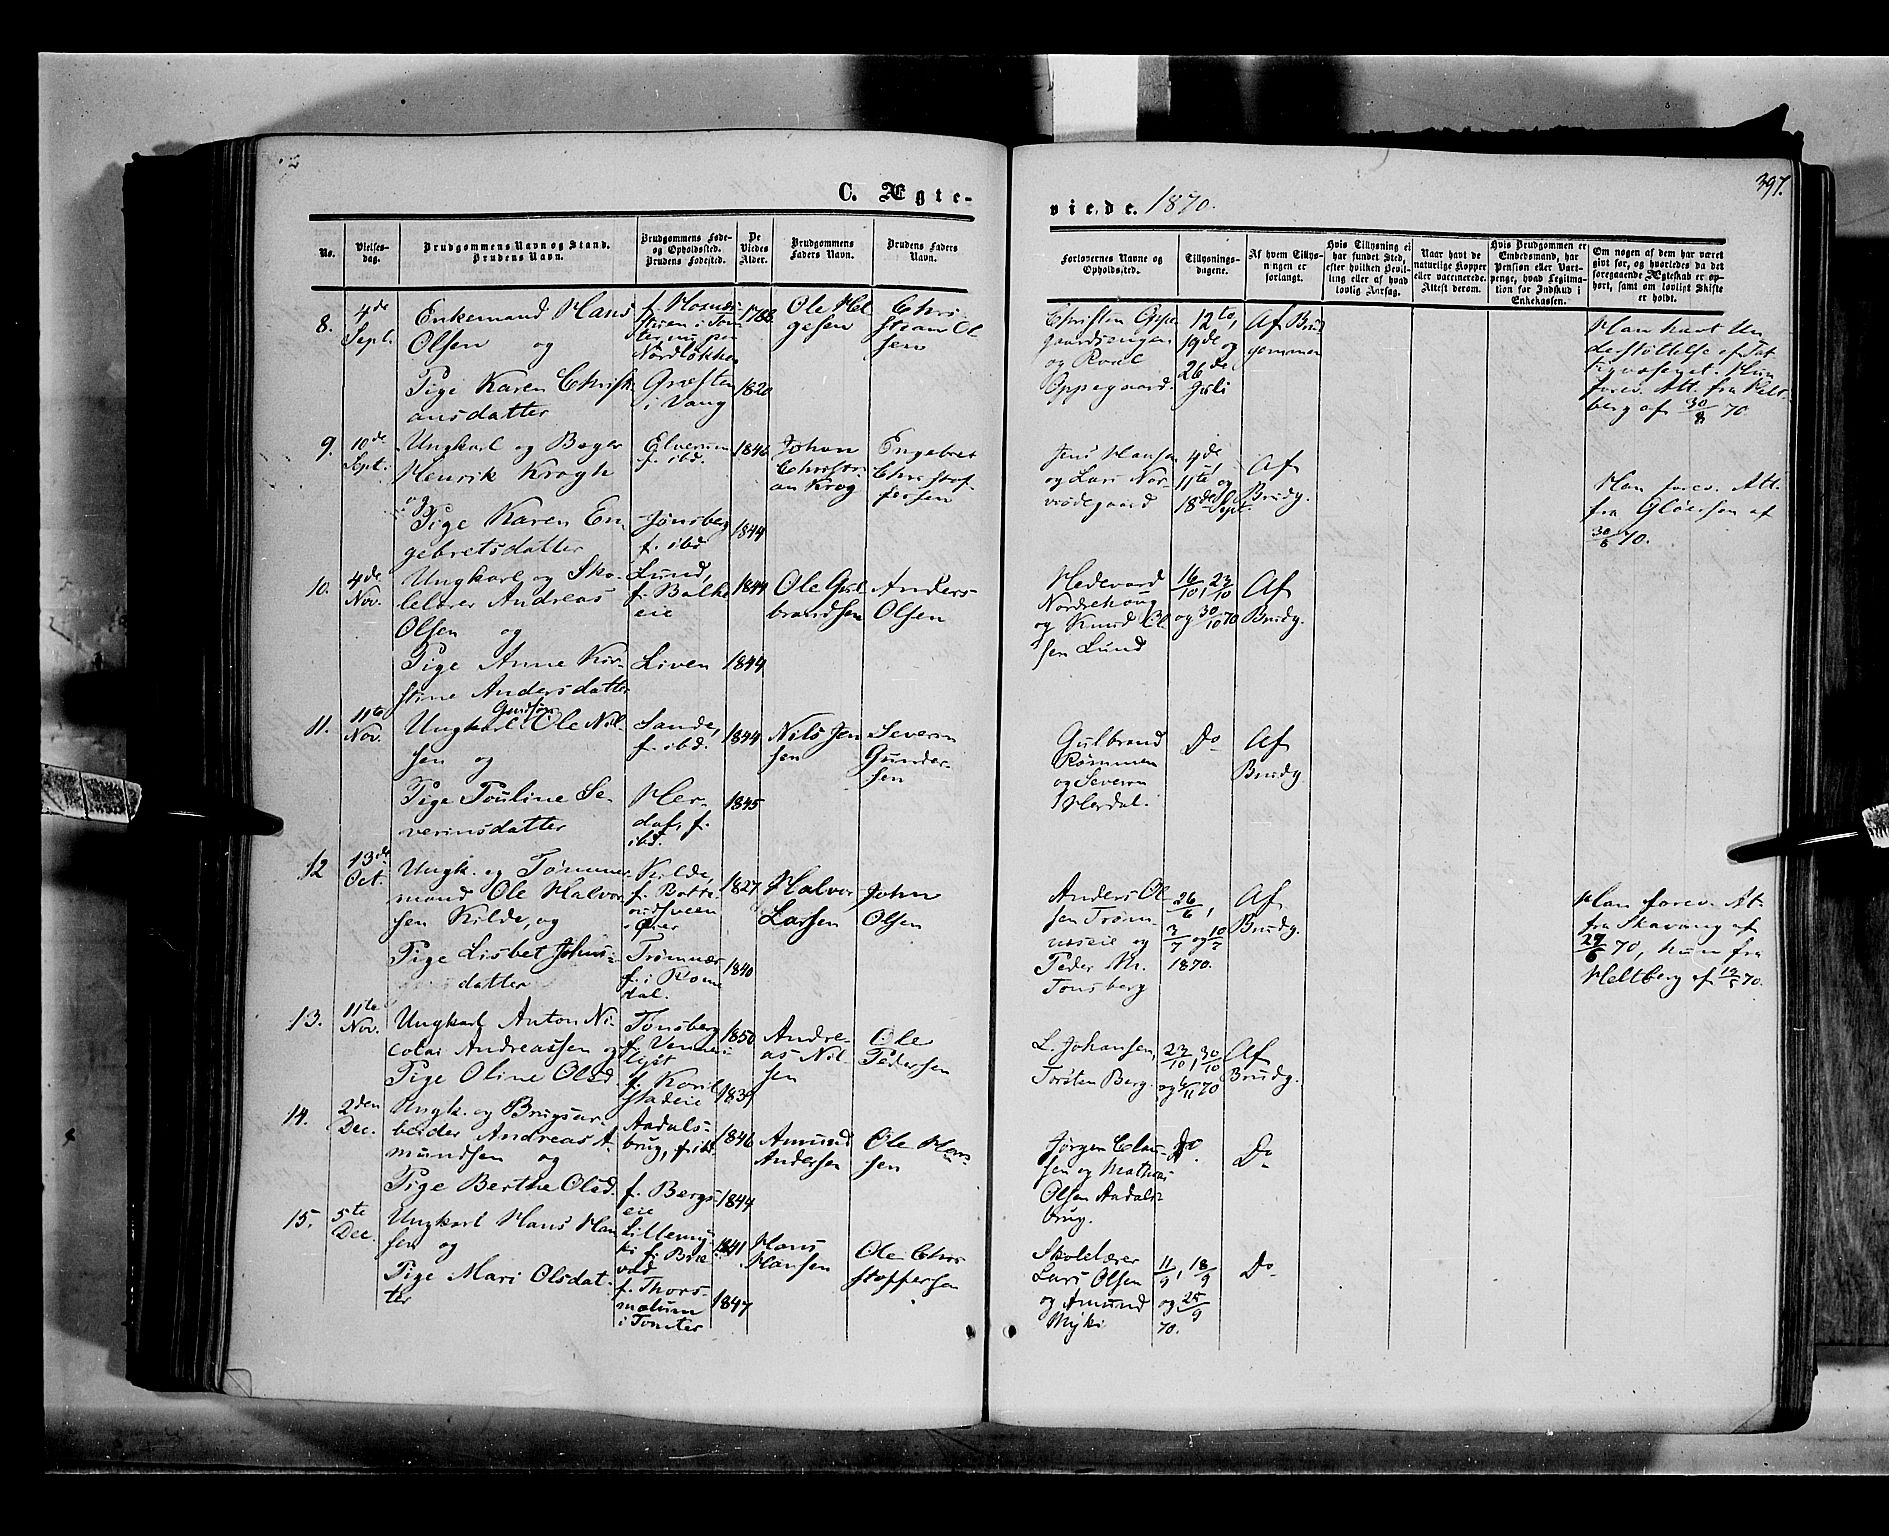 C. Ægte-
viede. 1870.
397.
No.
Vielses-
dag.
Brudgommens Navn og Stand.
Brudens Navn.
Brudgommens Føde-
og Opholdssted.
Brudens Fødested.
De
Viedes
Alder.
Brudgommens
Faders Navn.
Brudens Faders
Navn.
Forlovernes Navne og
Opholdssted.
Tillysnings-
dagene.
Af hvem Tillys-
ningen er
forlangt.
Hvis Tillysning ei
har fundet Sted,
efter hvilken Bevil-
ling eller af hvad
lovlig Aarsag.
Naar havt de
naturlige Kopper
eller vaccinerede.
Attest derom.
Hvis Brudgommen er
Embedsmand, har
Pension eller Vart-
penge, hvad Legitima-
tion for Indskud i
Enkekassen.
Om nogen af dem har været
givt før, og hvorledes da det
foregaaende Ægteskab er op-
hørt, samt om lovligt Skifte
er holdt.
8.
4de
Sept.
Enkemand Hans
Olsen og
Pige Karen Christi
ansdatter
Nordløkken
i Vang
1788
1820
Ole Hel
gesen
Chri
stian Ol
sen
Christen Oppe
gaardsengen
og Poul
Oppegaard.
12te,
19de og
26de
Juli
Af Brud
gommen
Han havt Un
derstøttelse af Fat
tigvæsenet. Hun
forev. Att. fra Helt-
berg af 30/8 70
9.
10de
Sept.
Ungkarl og Bager
Henrik Krogh
og
Pige Karen En
gebretsdatter
Elverum
f. ibd.
Jønsberg
f. ibd
1846
1844
Johan
Christi-
an Krog
Engebret
Christof-
fersen
Jens Hansen
og Lars Nor-
vødegaard
4de
11te og
18de Sept.
Af
Brudg.
Han forev. Att.
fra Gløersen af
30/6 70.
10.
4de
Nov.
Ungkarl og Sko-
lelærer Andreas
Olsen og
Pige Anne Kir-
stine Andersdatter
Lund,
f. Balke
eie
Liven
1844
1844
Ole Gul
brandsen
Anders
Olsen
Hedevard
Nordrehoug
og Knud Ol
sen Lund
16/10, 23/10
og 30/10 70
Af
Brudg.
11.
11te
Nov.
Ungkarl Ole Nil-
sen og
Pige Pouline Se-
verinsdatter
Sande,
f. ibd.
Her-
dal, f.
ibd.
1844
1845
Nils Jen
sen
Severin
Gunder-
sen
Gulbrand
Rømmen
og Severin
Herdal.
Do
Af
Brudg.
12
13de
Oct.
Ungk. og Tømmer
mand Ole Halvor
sen Kilde, og
Pige Lisbet Johns-
datter
Kilde,
i Øier
Trømnæs
f. i Roms
dal.
1827
1840
Halvor
Larsen
John
Olsen
Anders Ol
sen Trøm-
næseie og
Peder M.
Tonsberg
26/6,
3/7 og 10/7
1870.
Af
Brudg.
Han forev. At-
fra Skavang af
29/6 70, hun fra
Heltberg af 70.
13.
11te
Nov.
Ungkarl Anton Ni-
colai Andreassen og
Pige Oline Olsd.
Tønsberg
f. Karl
stadeie
1850
1839
Andre-
as Nil-
sen
Ole
Pedersen
L. Johansen,
Torsten Berg.
23/10, 30/10
og 6/11 70
Af
Brudg.
14.
2den
Dec.
Ungk. og Brugsar-
beider Andreas A-
mundsen og
Pige Berthe Olsd.
Aadals-
brug, f. ibd.
f. Bergs-
eie
1846
1844
Amund
Andersen
Ole Han-
sen
Jørgen Clau-
sen og Mathias
Olsen Aadals-
brug.
Do.
Do
15.
5te
Dec.
Ungkarl Hans Han
sen og
Pige Mari Olsdat-
ter
f. Thors-
mælum
i Tomter
1841
1847
Hans
Hansen
Ole Chri
stoffersen
Skolelærer
Lars Olsen
og Amund
Myki
11/9, 18/9
og 25/9
70.
Do